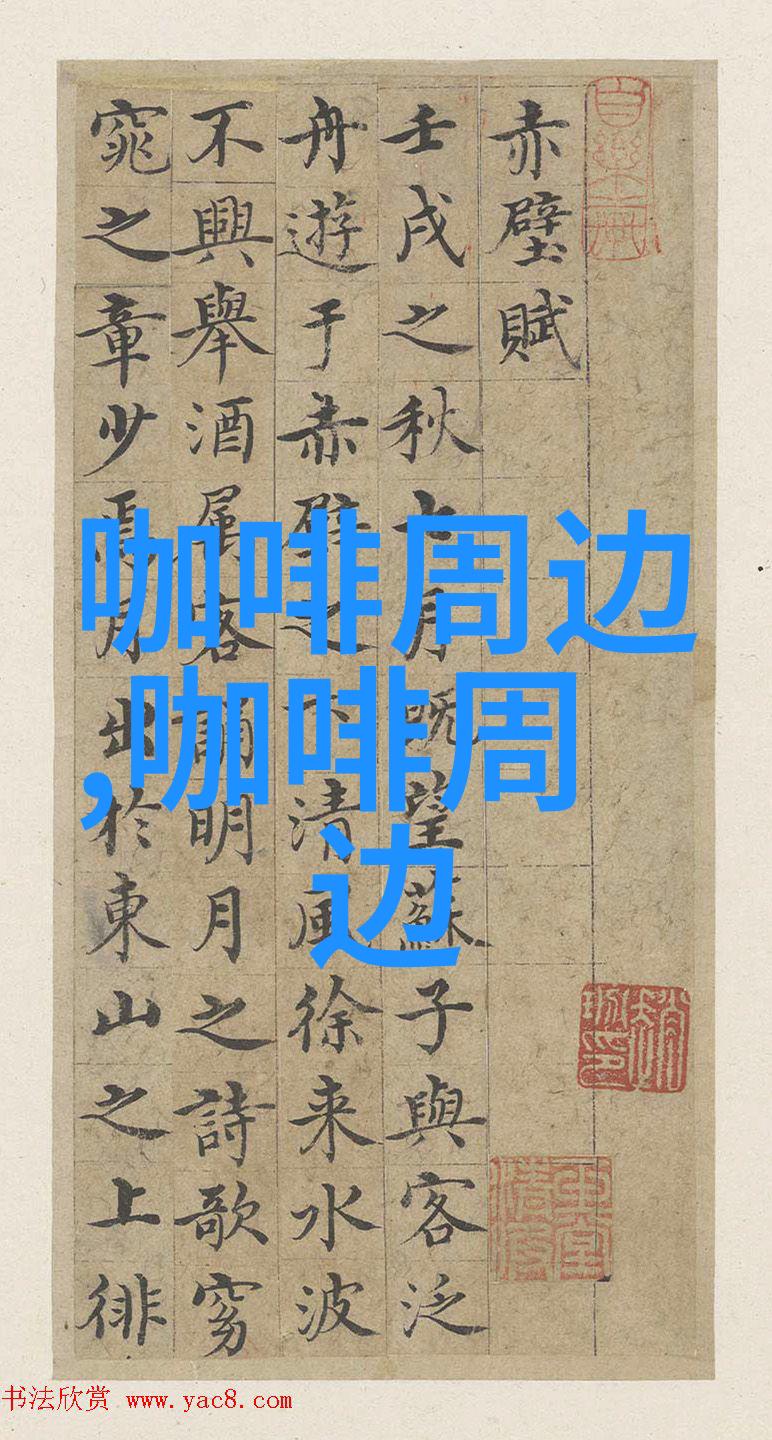 赤壁賦
壬戌之秋七月既望蘇子與客泛
舟遊于赤壁之下清風徐来水波
不興舉酒属客誦明月之詩歌窈
窕之章少焉月出於東山之上徘
咖啡周边
,咖啡周
边
书法欣赏 www.yac8.com